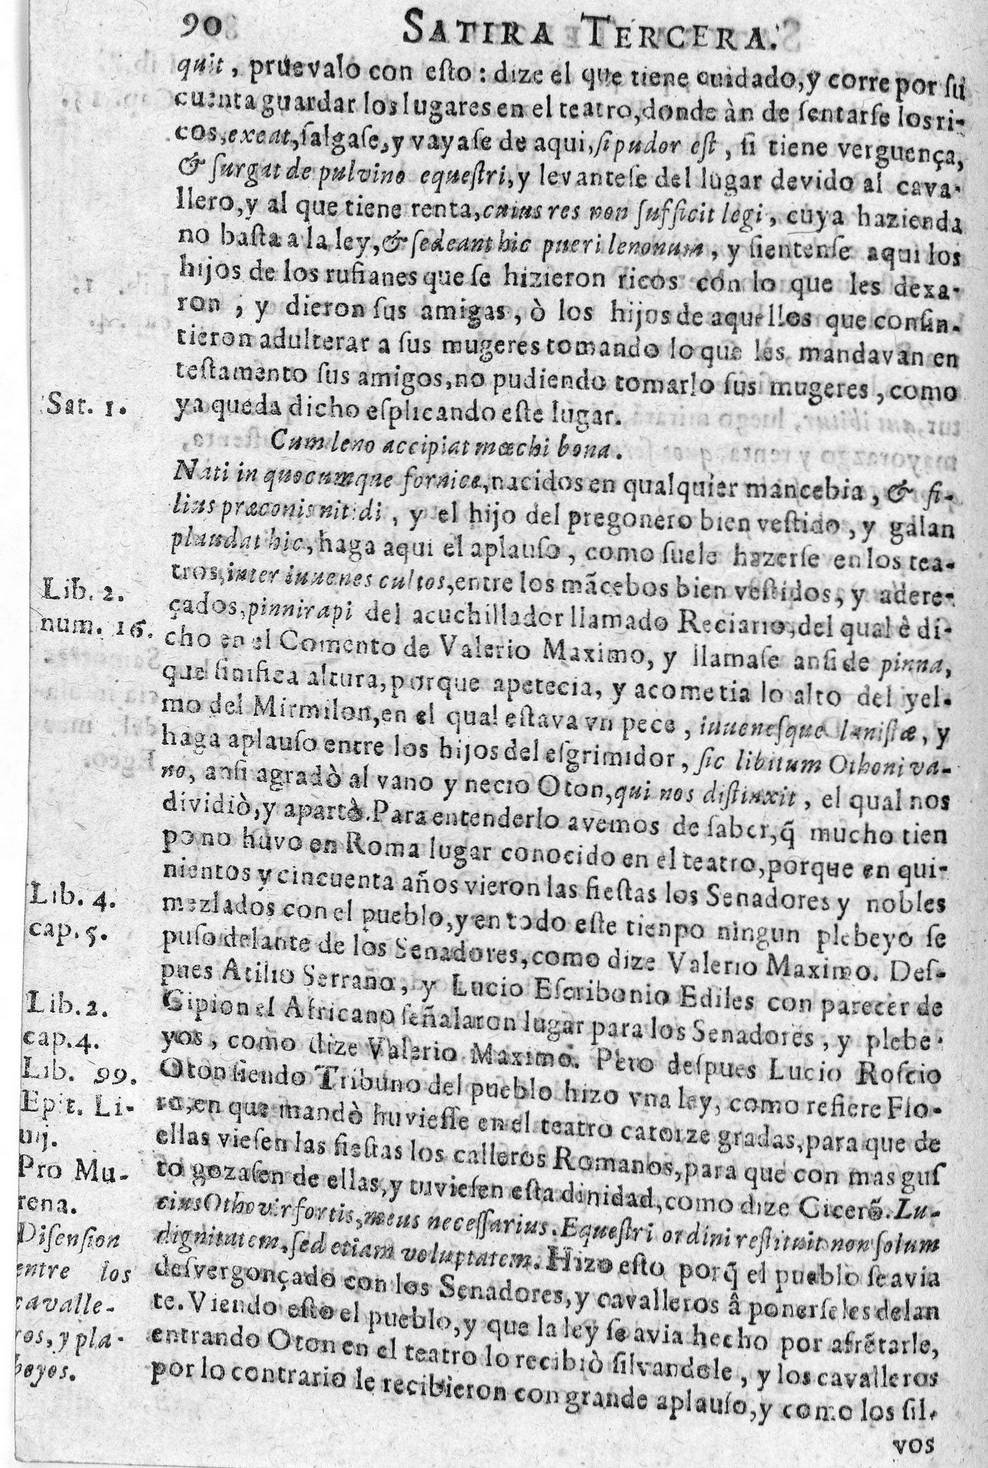 90 SATIRA TERCERA.
quit, pruevalo con esto: dize el que tiene cuidado, y corre por su
cuenta guardar los lugares en el teatro, donde àn de sentarse los ri-
cos, exeat, salgase, y vayase de aqui, si pudor est, si tiene verguença,
& surgat de pulvino equestri, y levantese del lugar devido al cava-
llero, y al que tiene renta, cuius res non sufficit legi, cuya hazienda
no basta a la ley, & sedeant hic pueri lenonum, y sientense aqui los
hijos de los rufianes que se hizieron ricos con lo que les dexa-
ron, y dieron sus amigas, ò los hijos de aquellos que consin-
tieron adulterar a sus mugeres tomando lo que les mandavan en
testamento sus amigos, no pudiendo tomarlo sus mugeres, como
Sat. 1. ya queda dicho esplicando este lugar.
Cum leno accipiat mœchi bona.
Nati in quocumque fornice, nacidos en qualquier mancebia, & fi-
lius præconis nitidi, y el hijo del pregonero bien vestido, y galan
plaudat hic, haga aqui el aplauso, como suele hazerse en los tea-
Lib. 2. tros, inter iuuenes cultos, entre los mãcebos bien vestidos, y adere-
num. 16. çados, pinnirapi del acuchillador llamado Reciario, del qual è di-
cho en el Comento de Valerio Maximo, y llamase ansi de pinna,
que sinifica altura, porque apetecia, y acometia lo alto del yel-
mo del Mirmilon, en el qual estava vn pece, iuuenesque lanistæ, y
haga aplauso entre los hijos del esgrimidor, sic libitum Othoni va-
no, ansi agradò al vano y necio Oton, qui nos distinxit, el qual nos
dividiò, y apartò. Para entenderlo avemos de saber, q̃ mucho tien
po no huvo en Roma lugar conocido en el teatro, porque en qui-
nientos y cincuenta años vieron las fiestas los Senadores y nobles
Lib. 4. mezlados con el pueblo, y en todo este tienpo ningun plebeyo se
cap. 5. puso delante de los Senadores, como dize Valerio Maximo. Des-
pues Atilio Serrano, y Lucio Escribonio Ediles con parecer de
Lib. 2. Cipion el Africano señalaron lugar para los Senadores, y plebe-
cap. 4. yos, como dize Valerio Maximo. Pero despues Lucio Roscio
Lib. 99. Oton siendo Tribuno del pueblo hizo vna ley, como refiere Flo-
Epit. Li- ro, en que mandò huviesse en el teatro catorze gradas, para que de
uij. ellas viesen las fiestas los calleros Romanos, para que con mas gus
Pro Mu- to gozasen de ellas, y tuviesen esta dinidad, como dize Cicerõ. Lu-
rena. cius Otho vir fortis, meus necessarius. Equestri ordini restituit non solum
Disension dignitatem, sed etiam voluptatem. Hizo esto porq̃ el pueblo se avia
entre los desvergonçado con los Senadores, y cavalleros â ponerse les delan
cavalle- te. Viendo esto el pueblo, y que la ley se avia hecho por afrẽtarle,
ros, y ple- entrando Oton en el teatro lo recibiò silvandole, y los cavalleros
beyos. por lo contrario le recibieron con grande aplauso, y como los sil-
vos